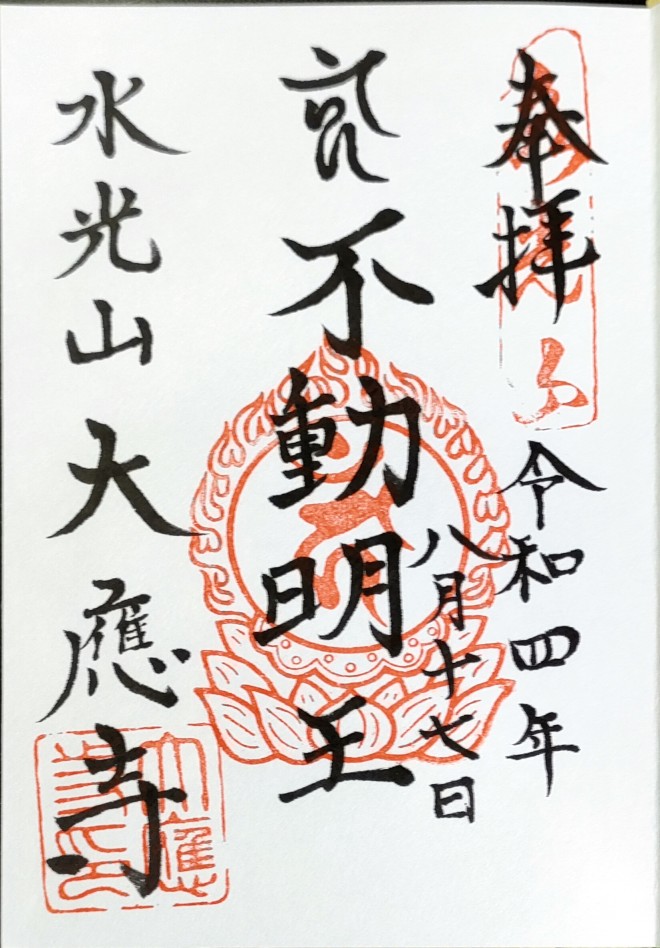 奉拝
令和四年
八月十七日
不動明王
水光山大應寺
大應寺印